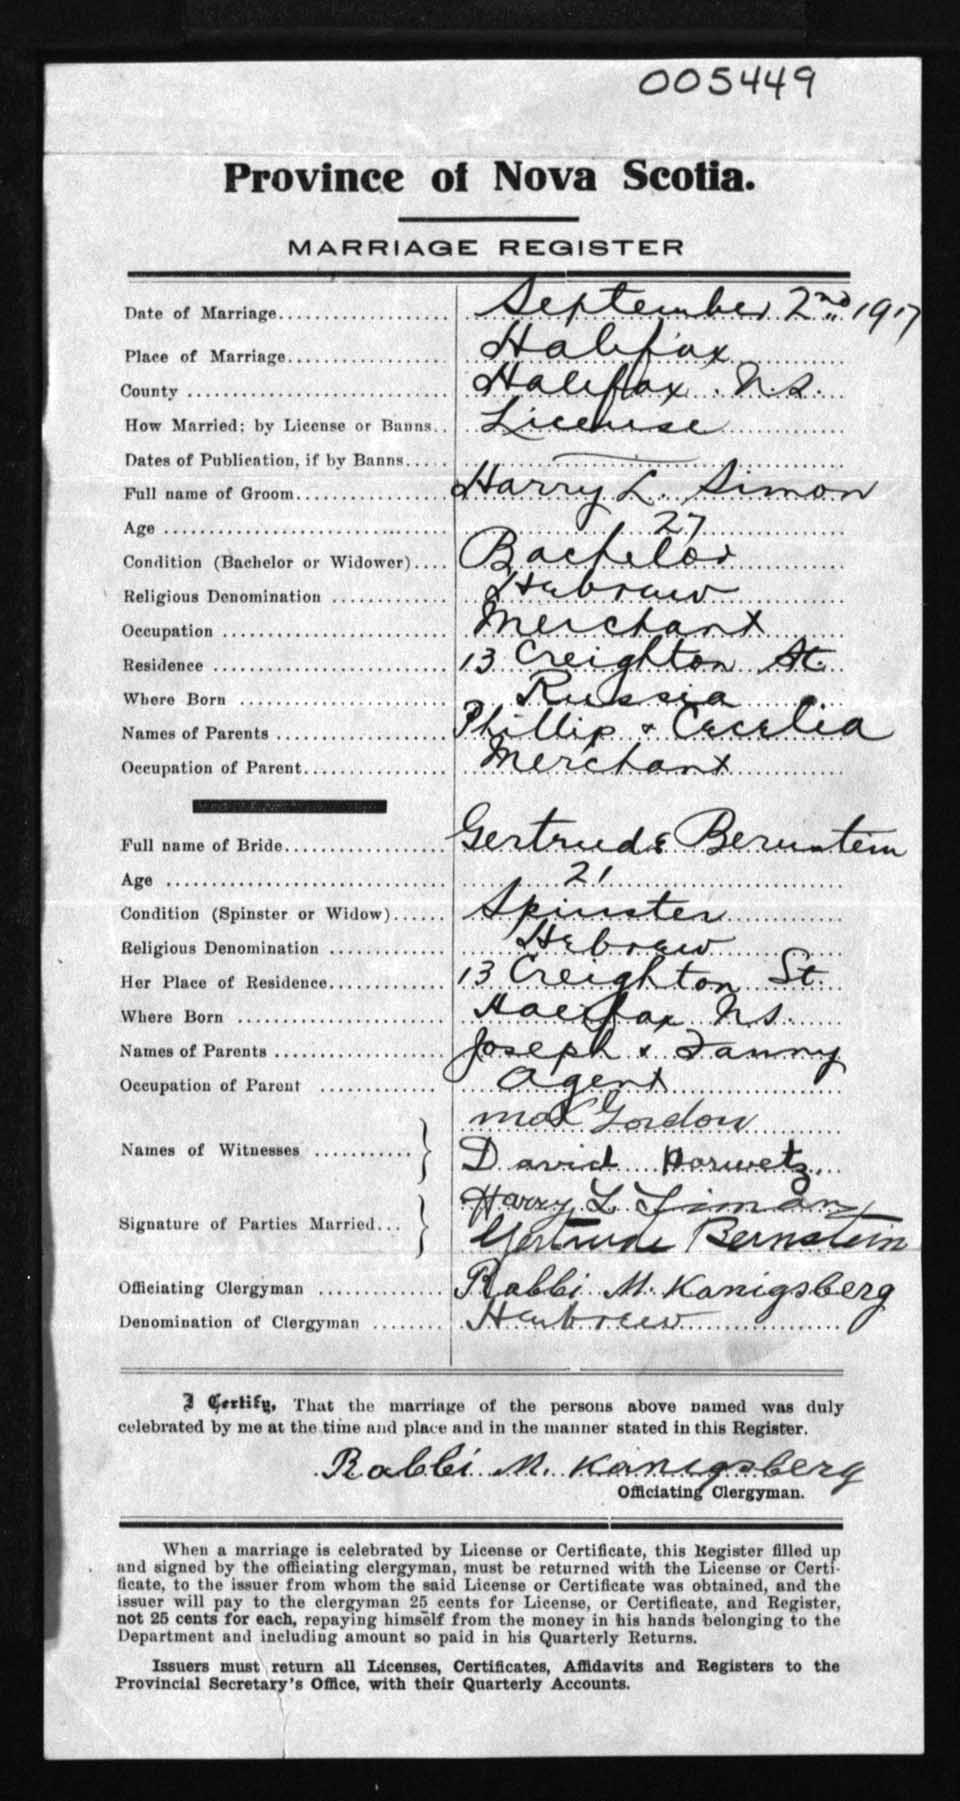 005449
Province of Nova Scotia.
MARRIAGE REGISTER
Date of Marriage.................... September 2nd 1917
Place of Marriage................... Halifax
County .............................. Halifax. N.S.
How Married; by License or Banns.. License
Dates of Publication, if by Banns.....
Full name of Groom.................. Harry L. Simon
Age ................................. 27
Condition (Bachelor or Widower).... Bachelor
Religious Denomination ............. Hebrew
Occupation .......................... Merchant
Residence ........................... 13 Creighton St.
Where Born ........................ Russia
Names of Parents .................... Phillip & Cecelia
Occupation of Parent................. Merchant
Full name of Bride................... Gertrude Bernstein
Age ................................. 21
Condition (Spinster or Widow)...... Spinster
Religious Denomination ............. Hebrew
Her Place of Residence.............. 13 Creighton St.
Where Born ........................ Halifax N.S.
Names of Parents .................... Joseph & Fanny
Occupation of Parent .............. Agent
Max Gordon
Names of Witnesses ...........
David Horwetz
Harry L. Simon
Signature of Parties Married...
Gertrude Bernstein
Officiating Clergyman .............. Rabbi M. Kanigsberg
Denomination of Clergyman ........ Heubrew
I Certify, That the marriage of the persons above named was duly
celebrated by me at the time and place and in the manner stated in this Register.
Rabbi M. Kanigsberg
Officiating Clergyman.
When a marriage is celebrated by License or Certificate, this Register filled up
and signed by the officiating clergyman, must be returned with the License or Certi-
ficate, to the issuer from whom the said License or Certificate was obtained, and the
issuer will pay to the clergyman 25 cents for License, or Certificate, and Register,
not 25 cents for each, repaying himself from the money in his hands belonging to the
Department and including amount so paid in his Quarterly Returns.
Issuers must return all Licenses, Certificates, Affidavits and Registers to the
Provincial Secretary's Office, with their Quarterly Accounts.